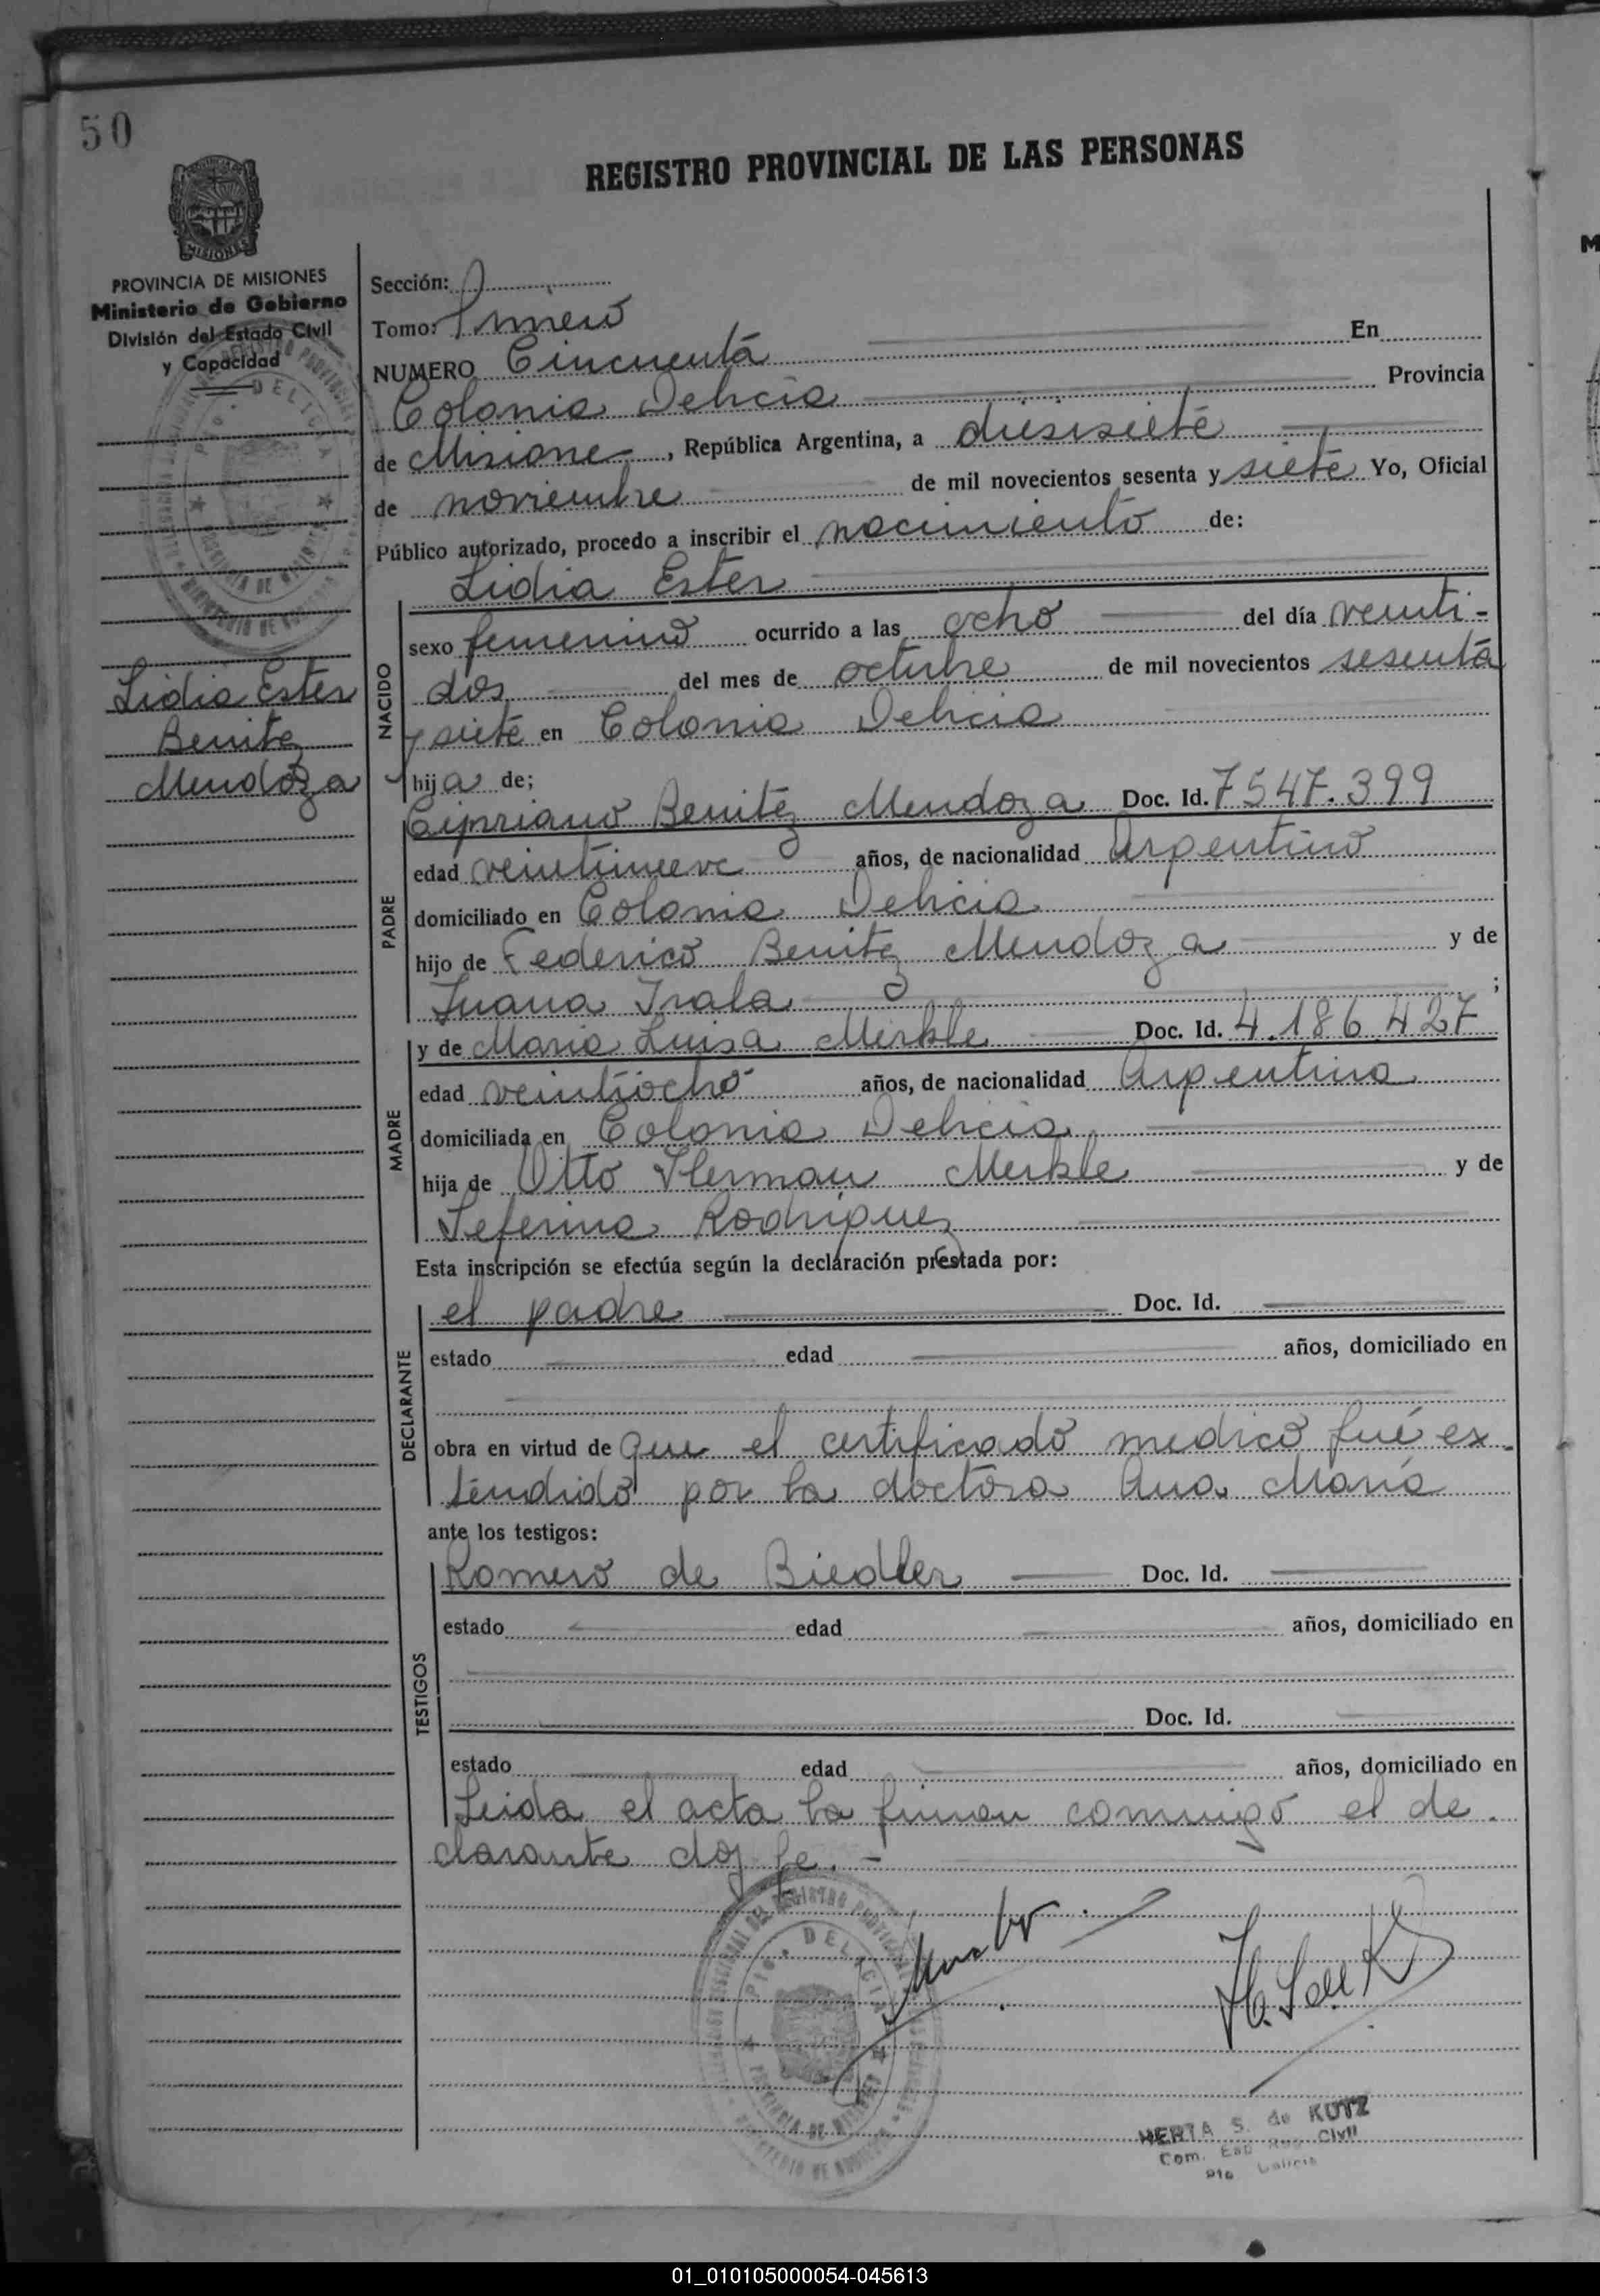 50
REGISTRO PROVINCIAL DE LAS PERSONAS
MISIONES
PROVINCIA DE MISIONES
Ministerio de Gobierno
División del Estado Civil
y Capacidad
Lidia Ester
Benitez
Mendoza
Sección:
Tomo: Primero
NUMERO Cincuenta En
Colonia Delicia Provincia
de Misiones, República Argentina, a diesisiete
de noviembre de mil novecientos sesenta y siete Yo, Oficial
Público autorizado, procedo a inscribir el nacimiento de:
Lidia Ester
NACIDO
sexo femenino ocurrido a las ocho del día veinti-
dos del mes de octubre de mil novecientos sesenta
y siete en Colonia Delicia
hija de;
PADRE
Cipriano Benitez Mendoza Doc. Id. 7547.399
edad veintinueve años, de nacionalidad Argentino
domiciliado en Colonia Delicia
hijo de Federico Benitez Mendoza y de
Juana Irala ;
MADRE
y de Maria Luisa Merkle Doc. Id. 4.186.427
edad veintiocho años, de nacionalidad Argentina
domiciliada en Colonia Delicia
hija de Otto Herman Merkle y de
Seferina Rodriguez
Esta inscripción se efectúa según la declaración prestada por:
DECLARANTE
el padre Doc. Id.
estado edad años, domiciliado en
obra en virtud de que el certificado medico fué ex-
tendido por la doctora Ana María
ante los testigos:
TESTIGOS
Romero de Biedler Doc. Id.
estado edad años, domiciliado en
Doc. Id.
estado edad años, domiciliado en
Leida el acta la firman conmigo el de-
clarante doy fe.-
HERTA S. de KUTZ
Civil
01_010105000054-045613